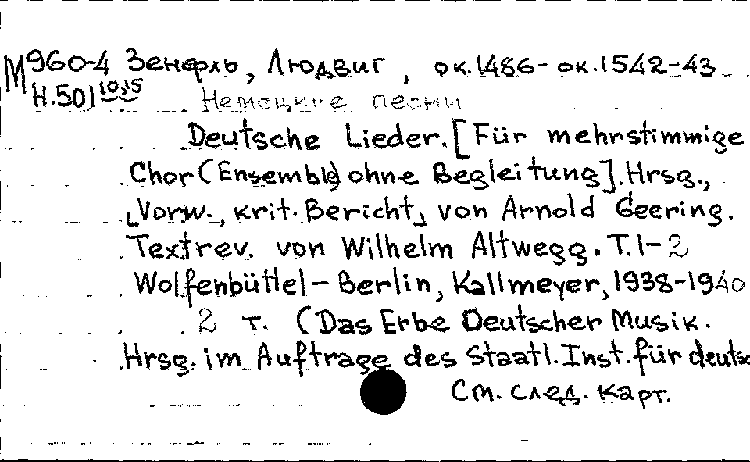 М960-4 Зенфль, Людвиг, ок.1486- ок.1542-43
Н.501 10,15 Немецкие песни
Deutsche Lieder. [Für mehrstimmige
Chor (Ensemble) ohne Begleitung]. Hrsg.,
„Vorw., krit. Bericht„ von Arnold Geering.
Textrev. von Wilhelm Altwegg. T.1-2
Wolfenbüttel - Berlin, Kallmeyer, 1938-1940
2 т. (Das Erbe Deutscher Musik.
Hrsg. im Auftrage des Staatl. Inst. für deutsc
См. след. карт.